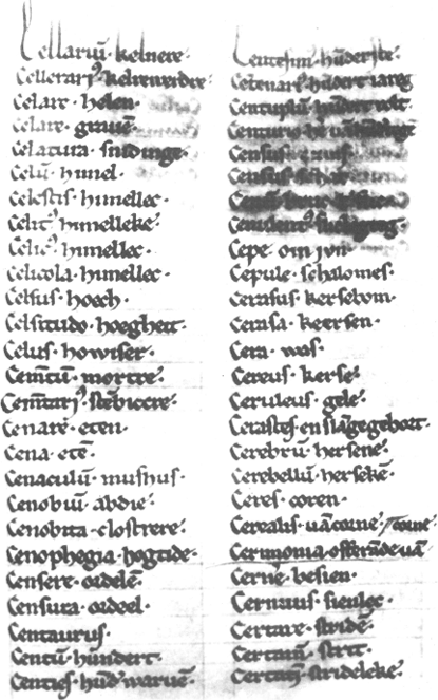 Cellariū · kelnere ·
Cellerari⁹ · kelrewerdre ·
Celare · helen ·
Celare · grauē ·
Celatura · snidinge ·
Celū · himel ·
Celestis · himellec ·
Celic⁹ · himelleke ·
Celic⁹ · himellec ·
Celicola · himellec ·
Celsus · hoech ·
Celsitudo · hoegheit ·
Celus · howiser ·
Cemētū · mortere ·
Cemētari⁹ · stēbickere ·
Cenare · eten ·
Cena · etē ·
Cenaculū · mushus ·
Cenobiū · abdie ·
Cenobita · clostrere ·
Cenophegia · hogtide ·
Censere · ordelē ·
Censura · ordeel ·
Centaurus ·
Centū · hundert ·
Centies · hūd waruē ·
Centesim⁹ · hūderste ·
Centenari⁹ · hūdert iareg
Centuplū · hūdert volt ·
Centurio ·
Census ·
Census ·
Cepe · oin iun
Cepule · schalomes ·
Cerasus · kersebom ·
Cerasa · keersen ·
Cera · was ·
Cereus · kerse ·
Ceruleus · gele ·
Cerastes · en slāge gehort ·
Cerebrū · hersene ·
Cerebellū · hersekē ·
Ceres · coren ·
Cerealis · uā corne
Cerimonia · offerāde uā
Cerne · besien ·
Cernuus · sienlec ·
Certare · stridē ·
Certamē · strit ·
Certatim · strideleke ·